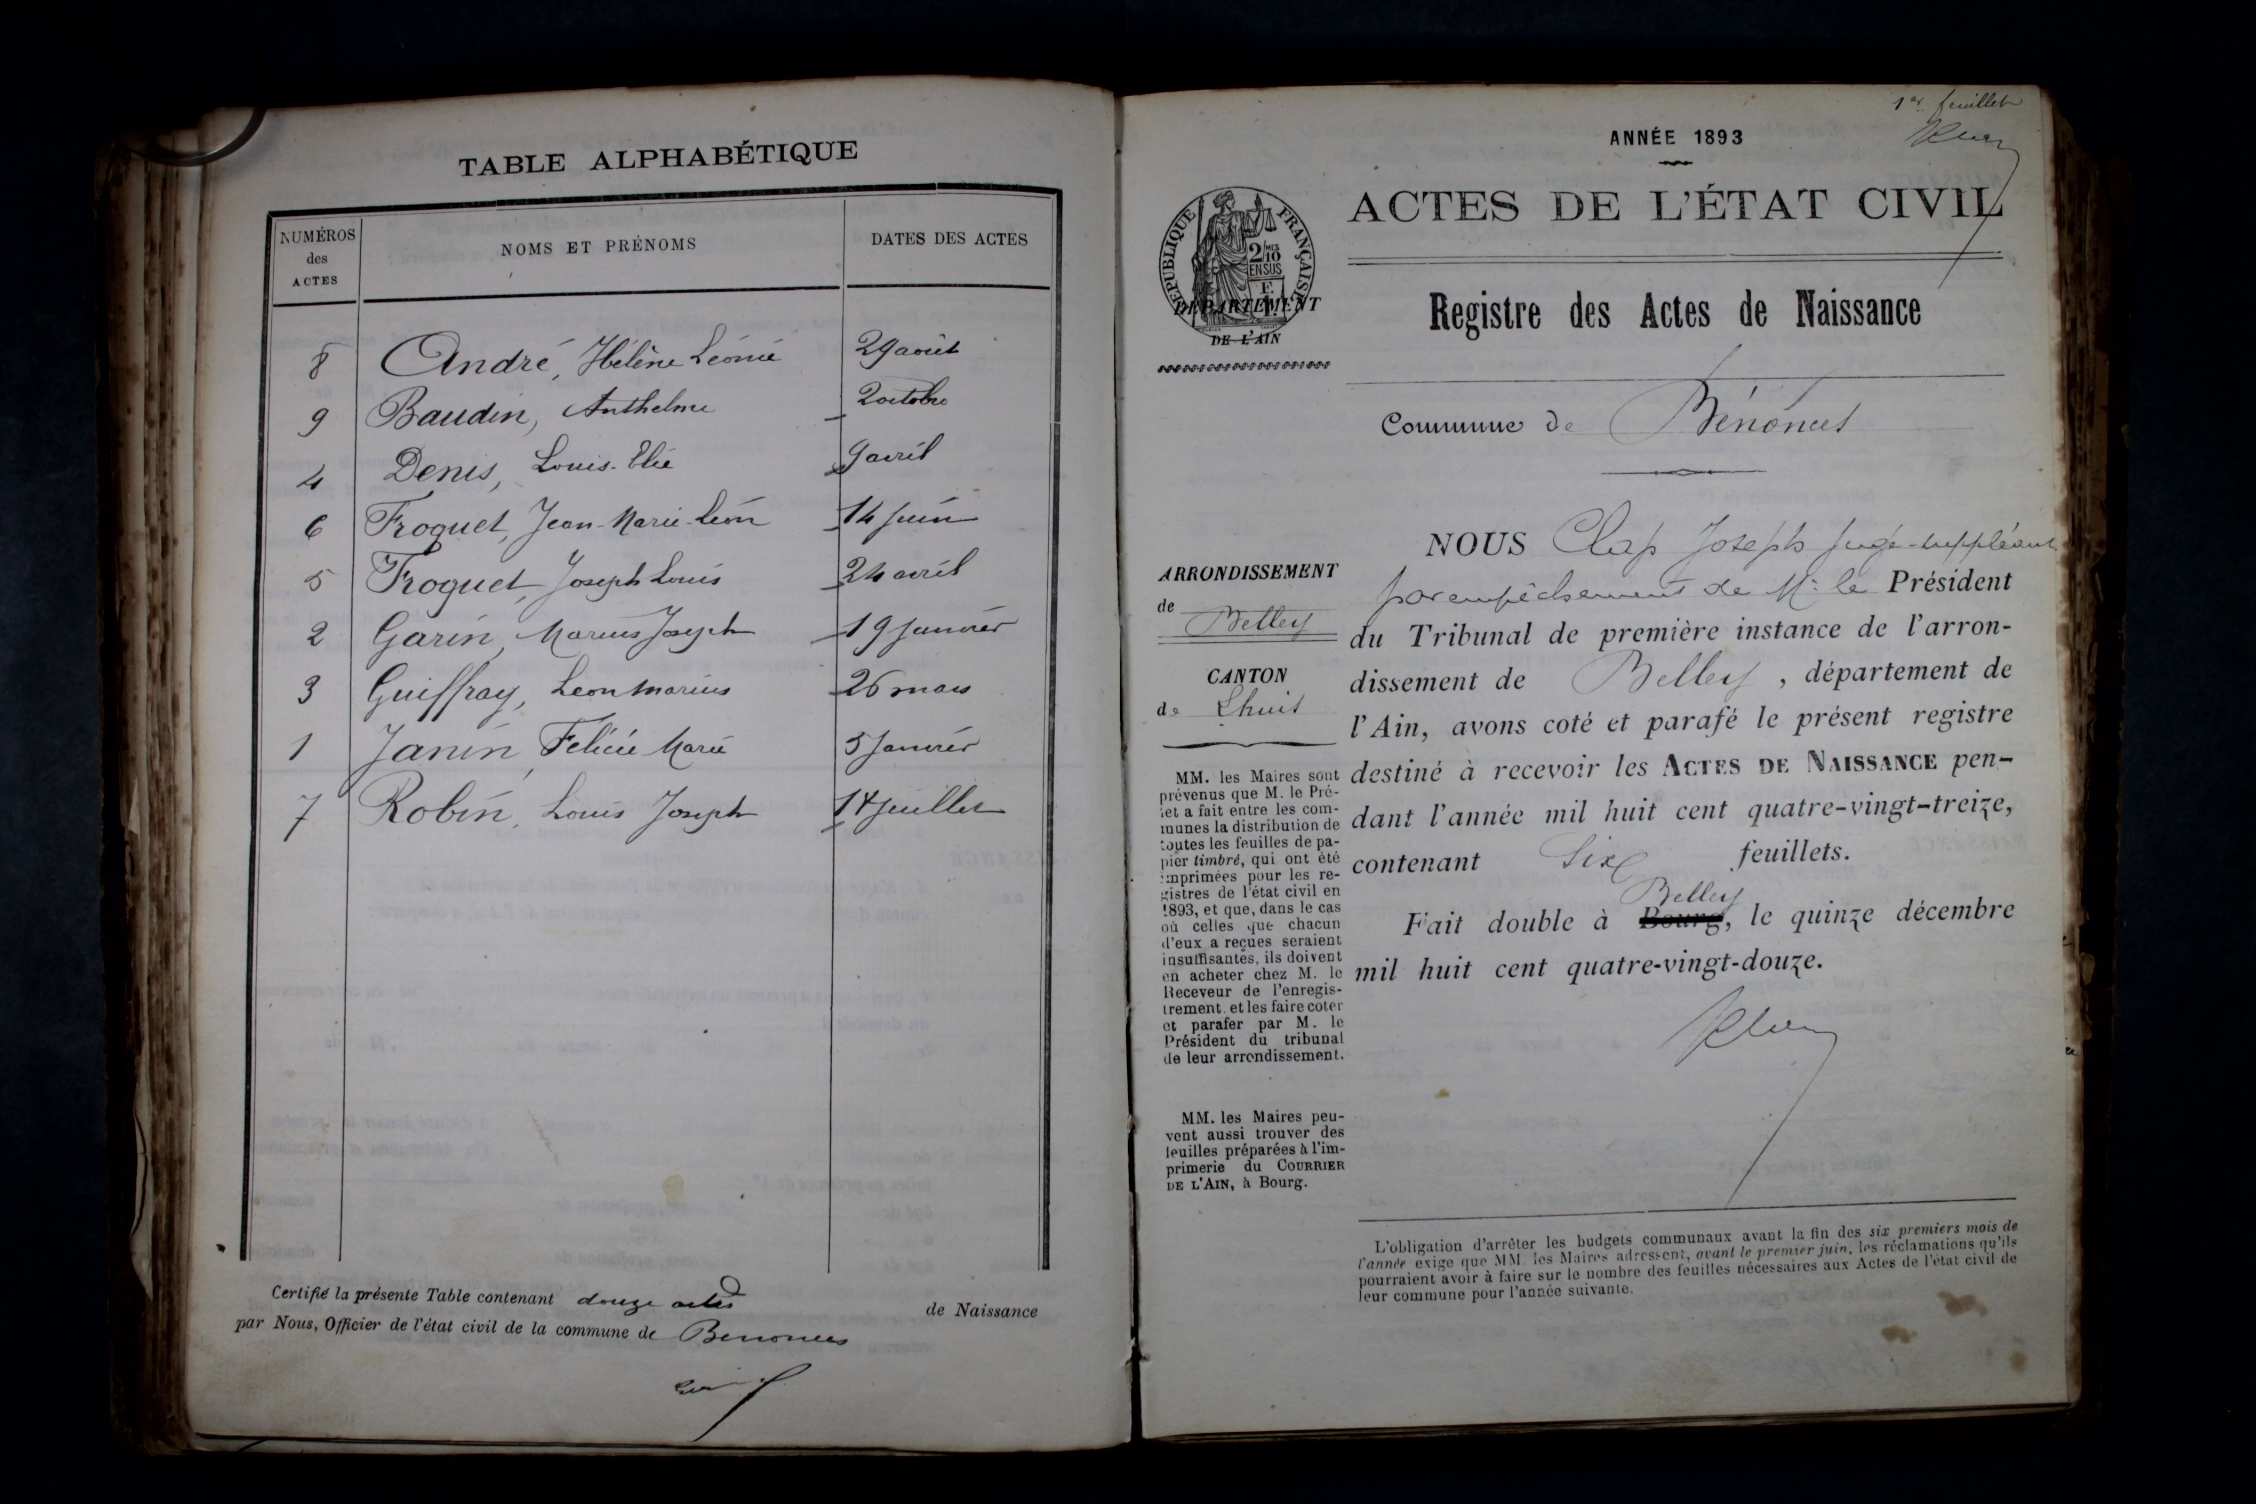 TABLE ALPHABÉTIQUE
NUMÉROS des ACTES
NOMS ET PRÉNOMS
DATES DES ACTES
8 André, Hélène Léonie 29 août
9 Baudin, Anthelme 2 octobre
4 Denis, Louis-Elie 9 avril
6 Froquet, Jean-Marie-Léon 14 juin
5 Froquet, Joseph Louis 24 avril
2 Garin, Marius Joseph 19 janvier
3 Guiffray, Léon Marius 26 mars
1 Janin, Félicie Marie 5 janvier
7 Robin, Louis Joseph 14 juillet
Certifié la présente Table contenant douze actes de Naissance
par Nous, Officier de l'état civil de la commune de Benonces
1er feuillet
ANNÉE 1893
ACTES DE L'ÉTAT CIVIL
REPUBLIQUE FRANÇAISE
2/10 MES
EN SUS
DÉPARTEMENT
DE L'AIN
Registre des Actes de Naissance
Commune de Bénonces
ARRONDISSEMENT
de Belley
CANTON
de Lhuis
MM. les Maires sont
prévenus que M. le Pré-
fet a fait entre les com-
munes la distribution de
toutes les feuilles de pa-
pier timbré, qui ont été
imprimées pour les re-
gistres de l'état civil en
1893, et que, dans le cas
où celles que chacun
d'eux a reçues seraient
insuffisantes, ils doivent
en acheter chez M. le
Receveur de l'enregis-
trement. et les faire coter
et parafer par M. le
Président du tribunal
de leur arrondissement.
MM. les Maires peu-
vent aussi trouver des
feuilles préparées à l'im-
primerie du COURRIER
DE L'AIN, à Bourg.
NOUS Clap Joseph juge-suppléant
par empêchement de Mr. le Président
du Tribunal de première instance de l'arron-
dissement de Belley, département de
l'Ain, avons coté et parafé le présent registre
destiné à recevoir les ACTES DE NAISSANCE pen-
dant l'année mil huit cent quatre-vingt-treize,
contenant Six feuillets.
Belley
Fait double à Bourg, le quinze décembre
mil huit cent quatre-vingt-douze.
L'obligation d'arrêter les budgets communaux avant la fin des six premiers mois de
l'année exige que MM. les Maires adressent, avant le premier juin, les réclamations qu'ils
pourraient avoir à faire sur le nombre des feuilles nécessaires aux Actes de l'état civil de
leur commune pour l'année suivante.